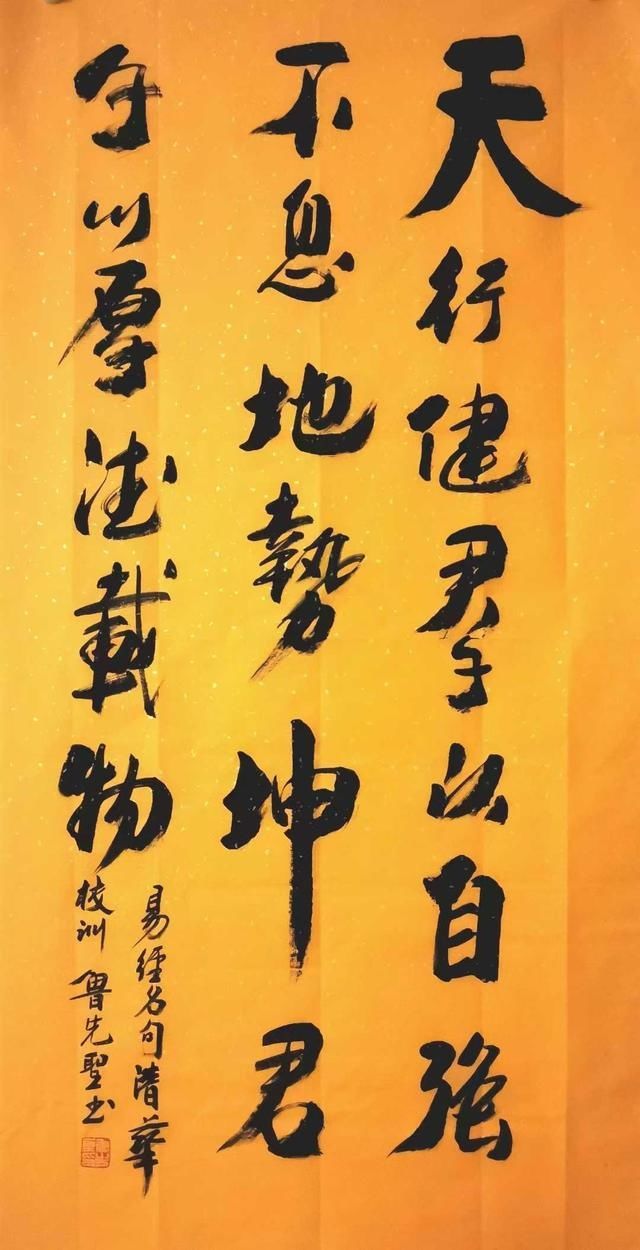 天行健君子以自强
不息地勢坤君
子以厚德載物
易經名句清華
校训 魯先聖书